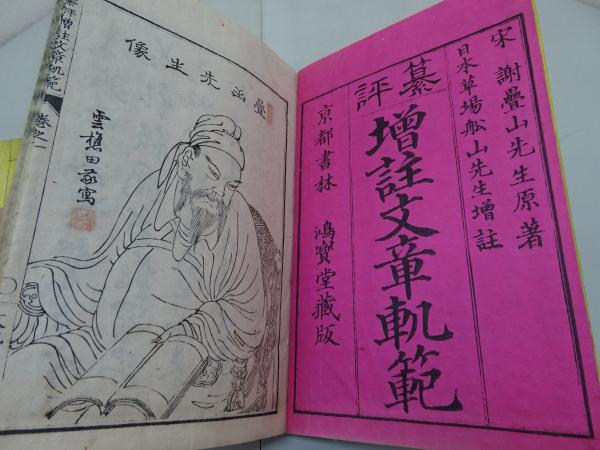 宋 謝疊山先生原著
日本草場船山先生增註
纂評
增註文章軌範
京都書林 鴻寶堂藏版
疊山先生像
雲樵田寫
纂評增註文章軌範
卷之一